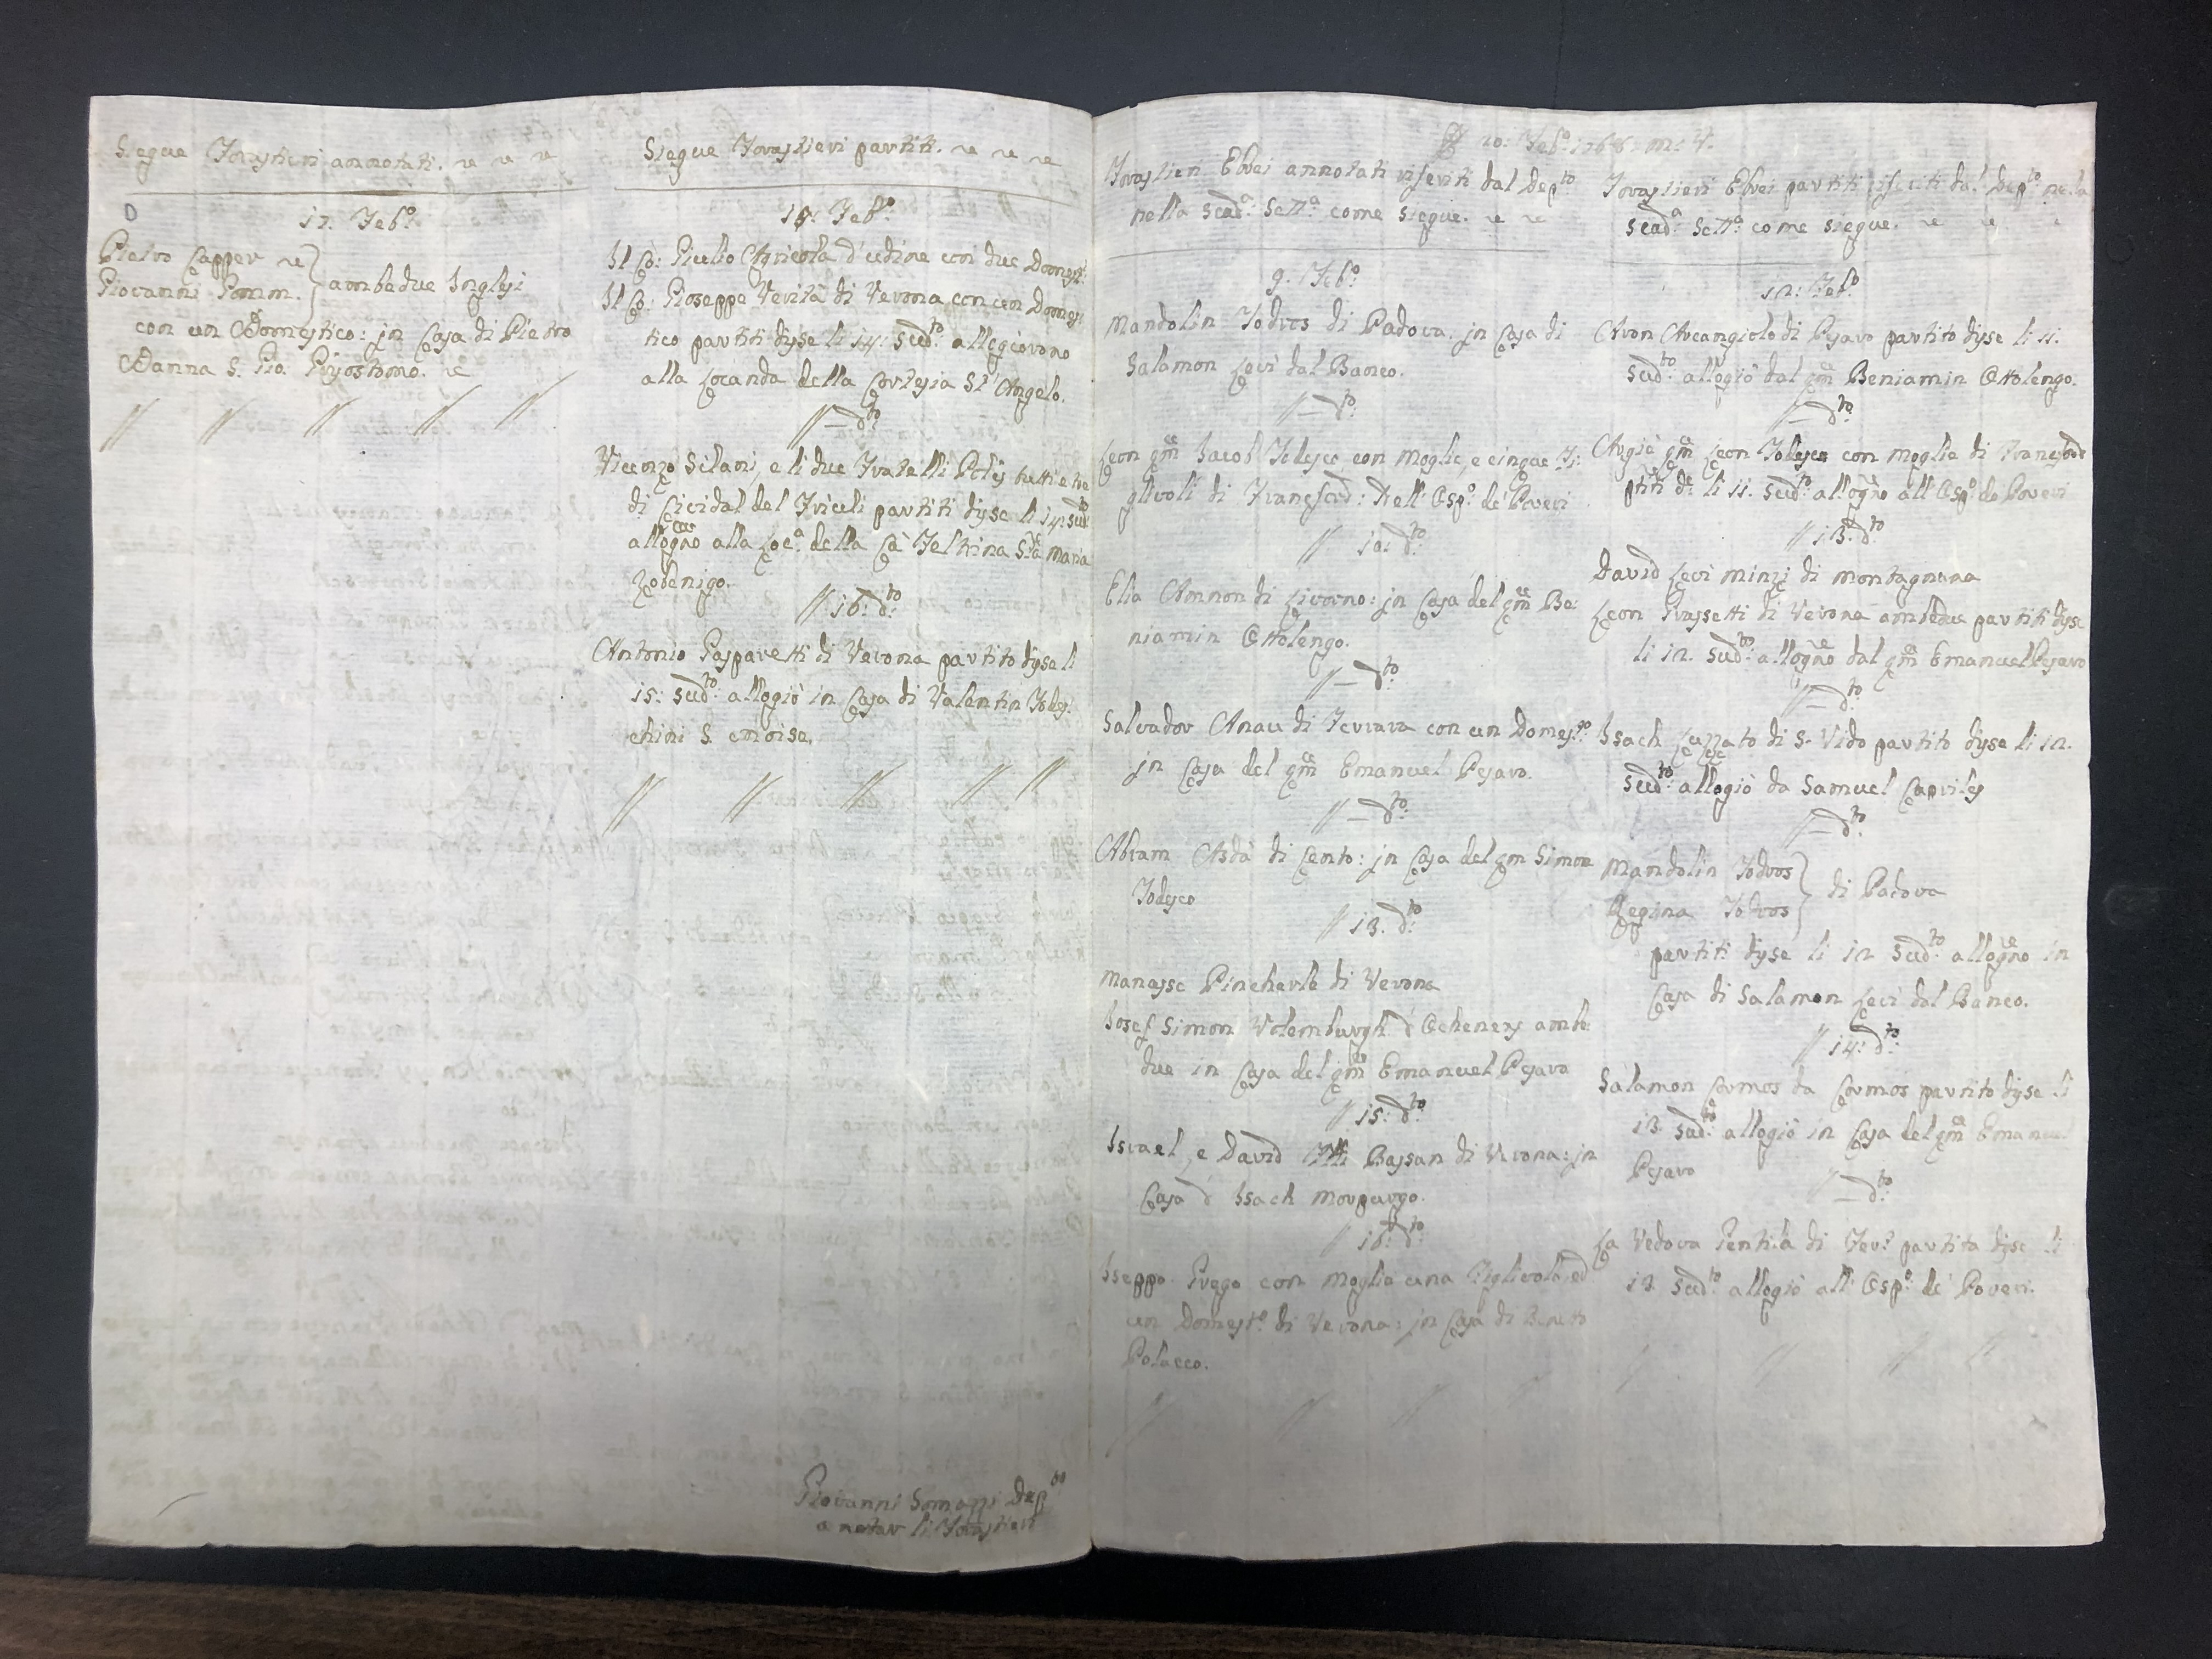 Siegue Forestieri annotati.
17. Feb.º
Pietro Capper
Giovanni } ambedue Inglesi
con un Domestico: in Casa di Pietro
Danna S. Gio Grisostomo.
Siegue Forestieri partiti.
Feb.º
Il Co: Giulio Agricola d'udine con due Domest:
Il Co: Gioseppe Verità di Verona con un Domes:
tico partiti disse li 14: sud.to allegiorono
alla Locanda della Cortesia S.t Angelo.
// — d.to
Vicenzo Silani, e li due Fratelli Polis tutti e tre
di Cividal del Friuli partiti disse li 14: sud.to
allogno alla Loc.a della Ca Feltrina S.ta Maria
Zobenigo.
// 16: d.to
Antonio Gasparetti di Verona partito disse li
15: sud.to allogiò in Casa di Valentin Todes:
chini S. Moise.
Giovanni Somazzi Dep.to
a notar li Forestieri
20: Feb.º 1768 m: V.
Forestieri Ebrei annotati riferiti dal Dep.to
nella scad.a Sett.a come siegue.
9. Feb.º
Mandolin Todros di Padova. in Casa di
Salamon Levi dal Banco.
// — d.to
Leon qm Jacob Todesco con Moglie, e cinque Fi:
glivoli di Francford: Nell' Osp.º de' Poveri
// 10: d.to
Elia Amnon di Livorno: in Casa del qm Be:
niamin Ottolengo.
// — d.to
Salvador Anau di Ferrara con un Domes.co
in Casa del qm Emanuel Pesaro.
// — d.to
Abram Asdà di Cento: in Casa del qm Simon
Todesco
// 13. d.to
Manasse Pincherle di Verona
Iosef Simon Volemburgh d' ambe
due in Casa del qm Emanuel Pesaro
// 15: d.to
Israel, e David Flli Bassan di Verona: in
Casa d' Isach Morpurgo.
// 16: d.to
Iseppo Grego con Moglie una Figlivola, ed
un Domest.º di Verona: in Casa di Beneto
Polacco.
Forestieri Ebrei partiti riferiti dal Dep.to nella
scad.a Sett.a come siegue.
12: Feb.º
Aron Arcangiolo di Pesaro partito disse li 11.
sud.to allogiò dal qm Beniamin Ottolengo.
// — d.to
Angiò qm Leon Todesco con Moglie di Francford
ptiti d.e li 11. sud.to allogno all' Osp.º de Poveri
// 13. d.to
David Levi Minzi di Montagnana
Leon Grassetti di Verona ambedue partiti disse
li 12. sud.to allogno dal qm Emanuel Pesaro
// — d.to
Isach Luzzato di S. Vido partito disse li 12.
sud.to allogiò da Samuel Capriles
// — d.to
Mandolin Todros
Regina Todros } di Padova
partiti disse li 12 sud.to allogno in
Casa di Salamon Levi dal Banco.
// 14: d.to
Salamon Cormos da Cormos partito disse li
13. sud.to allogiò in Casa del qm Emanuel
Pesaro
// — d.to
La Vedova Gentila di Fer.a partita disse li
13. sud.to allogiò all' Osp.º de' Poveri.